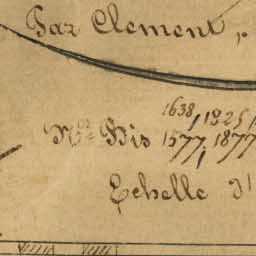 Par Clement,
1638, 1825,
Nos Bis 1577, 1877
Echelle d'